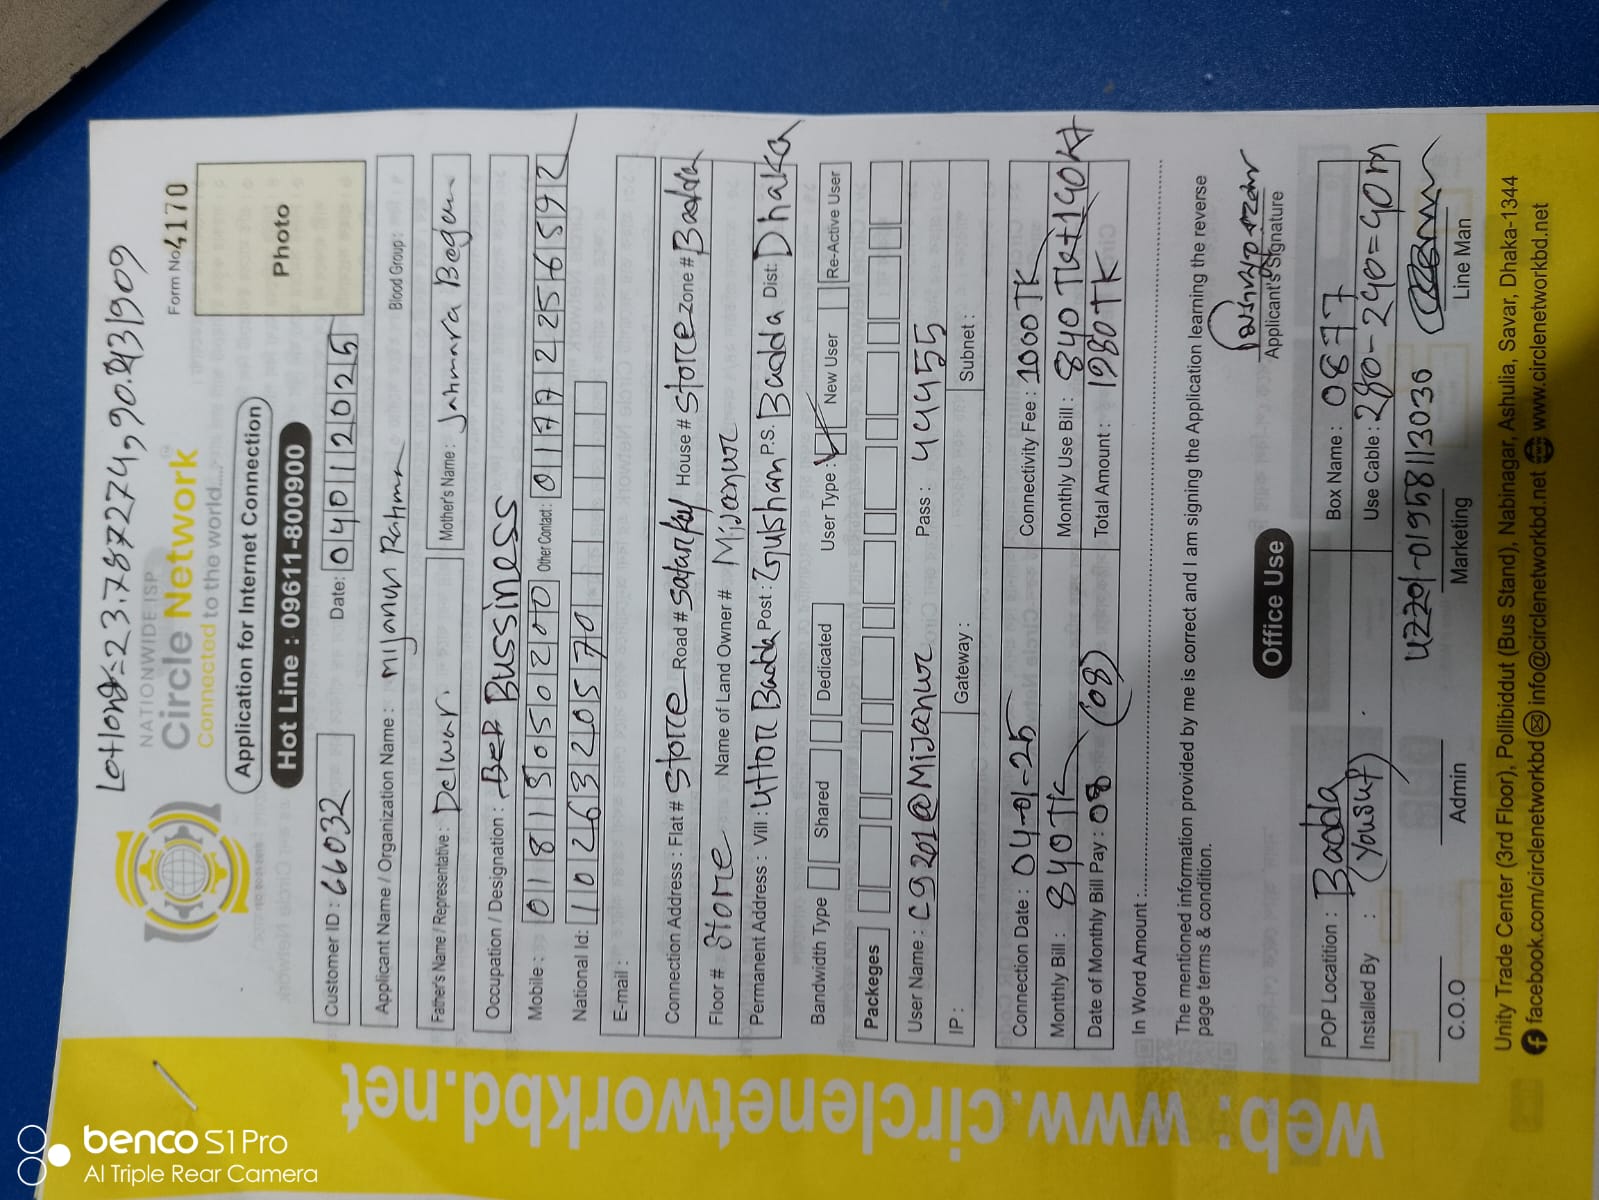 Lotlong=23.7872274,90.4231909
NATIONWIDE ISP
Circle Network
Connected to the world....
Form No 4170
Application for Internet Connection
Hot Line : 09611-800900
Photo
Customer ID : 66032 Date: 04012025
Applicant Name / Organization Name : Mijanur Rahman Blood Group :
Father's Name / Representative : Delwar. Mother's Name : Jahmara Begum
Occupation / Designation : Bussiness
Mobile : 01813050200 Other Contact: 01772256592
National Id: 1026320570
E-mail :
Connection Address : Flat # Store Road # House # Store zone # Badda
Floor # Store Name of Land Owner # Mijanur
Permanent Address : Vill : Uttor Badda Post : Gulshan P.S. Badda Dist: Dhaka
Bandwidth Type Shared Dedicated User Type : New User Re-Active User
Packeges
User Name : c9201@Mijanur Pass : 44455
IP : Gateway : Subnet :
Connection Date : 04-01-25 Connectivity Fee : 1000TK
Monthly Bill : 840TK Monthly Use Bill : 840TK+140
Date of Monthly Bill Pay : 08 (08) Total Amount : 1980TK
In Word Amount
The mentioned information provided by me is correct and I am signing the Application learning the reverse
page terms & condition.
Applicant's Signature
Office Use
POP Locatition : Badda Box Name : 0877
Installed By : (Yousuf) Use Cable : 280-240=40m
4220/-01958113036
C.O.O Admin Marketing Line Man
Unity Trade Center (3rd Floor), Pollibiddut (Bus Stand), Nabinagar, Ashulia, Savar, Dhaka-1344
facebook.com/circlenetworkbd info@circlenetworkbd.net www.circlenetworkbd.net
web: www.circlenetworkbd.net
benco S1 Pro
AI Triple Rear Camera